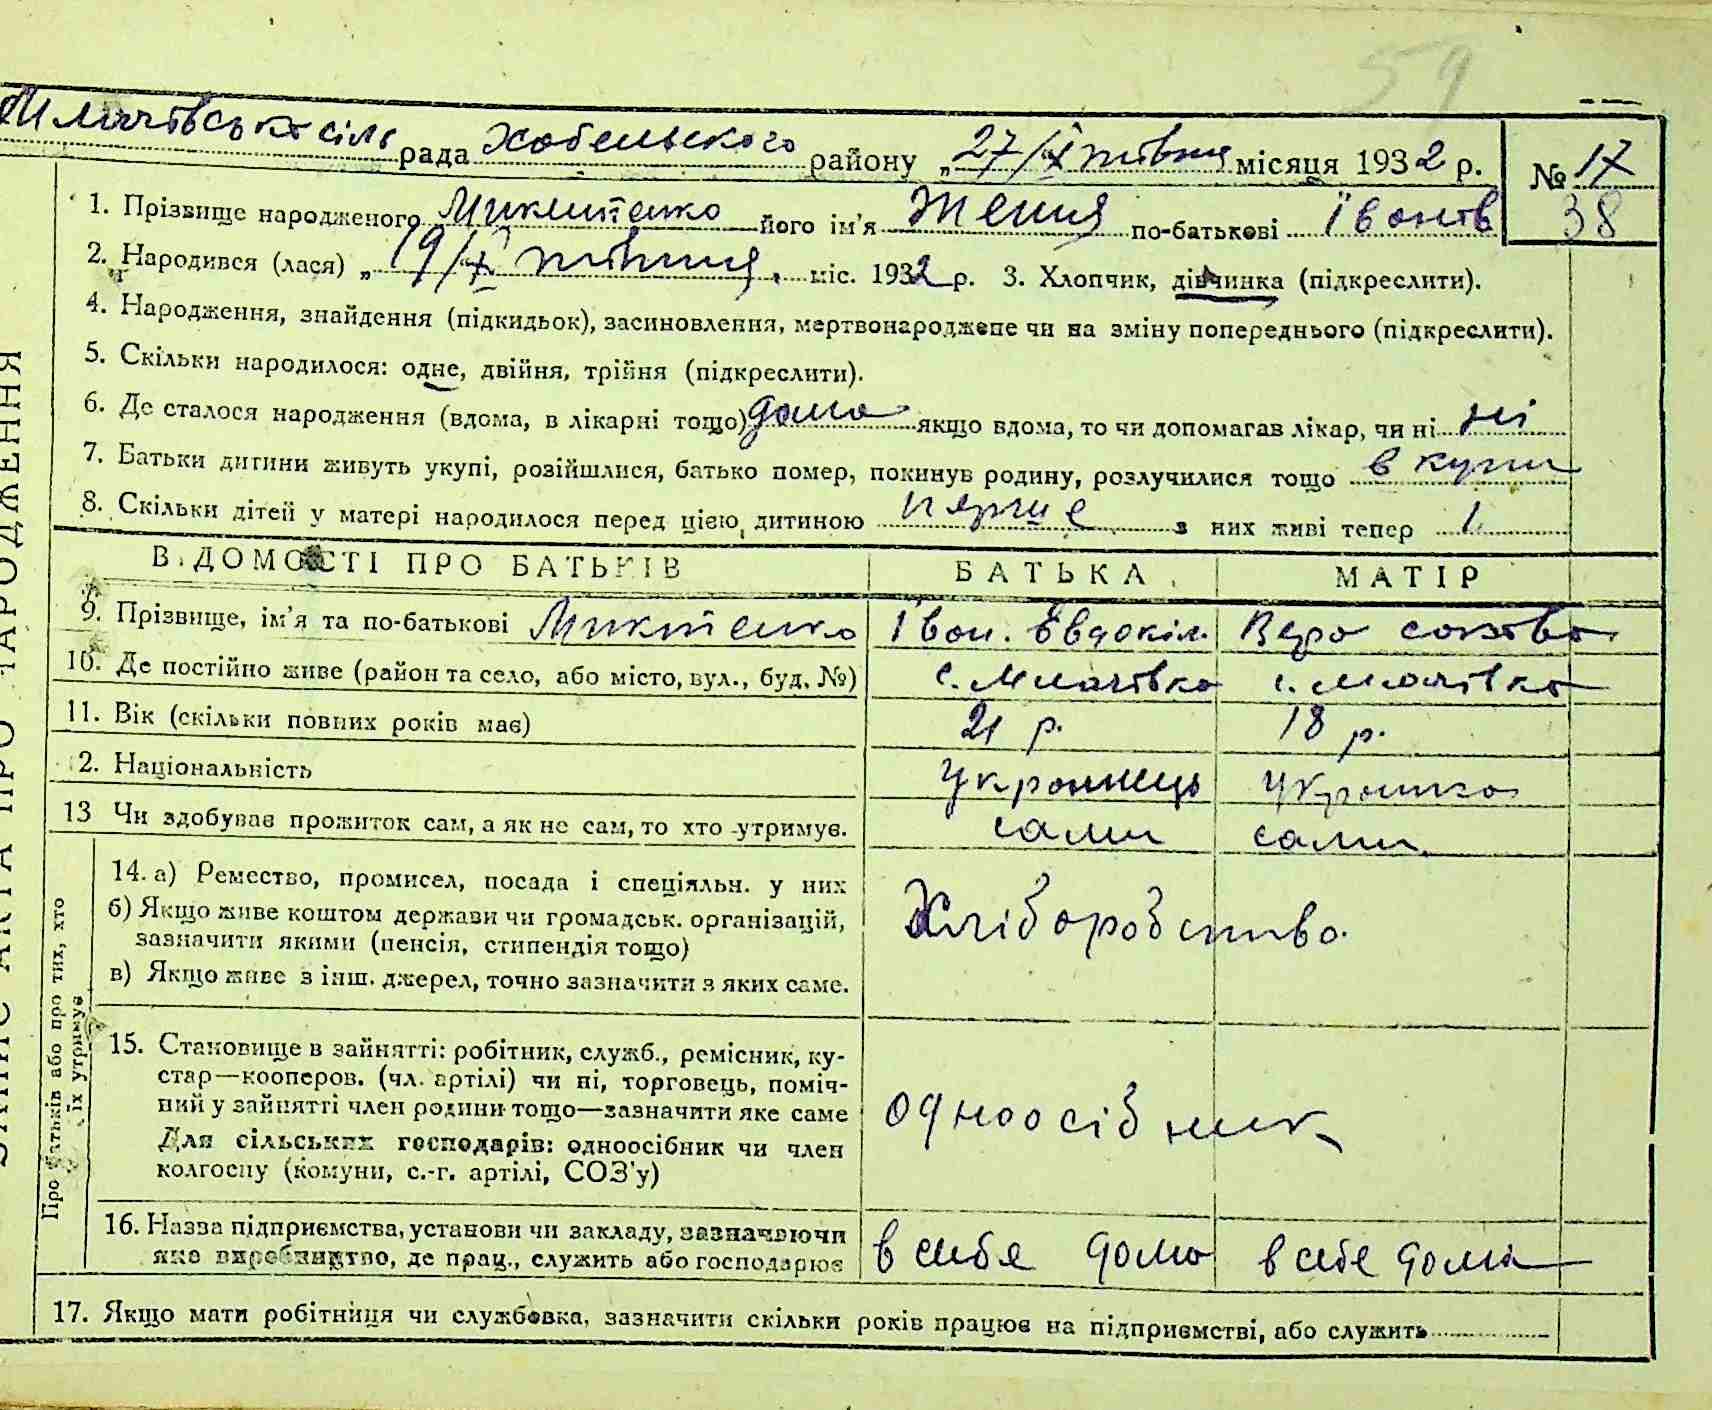 59
рада Хобельського району „27/X жовтня місяця 1932 р. № 17
38
1. Прізвище народженого Микитенко його ім'я Женя по-батькові Івонів
2. Народився (лася) „19/X жовтня, міс. 1932 р. 3. Хлопчик, дівчинка (підкреслити).
4. Народження, знайдення (підкидьок), засиновлення, мертвонароджене чи на зміну попереднього (підкреслити).
5. Скільки народилося: одне, двійня, трійня (підкреслити).
6. Де сталося народження (вдома, в лікарні тощо) дома якщо вдома, то чи допомагав лікар, чи ні ні
7. Батьки дитини живуть укупі, розійшлися, батько помер, покинув родину, розлучилися тощо в купи
8. Скільки дітей у матері народилося перед цією дитиною перше з них живі тепер 1.
ВІДОМОСТІ ПРО БАТЬКІВ БАТЬКА МАТІР
9. Прізвище, ім'я та по-батькові Микитенко Івон. Евдокім. Вера
10. Де постійно живе (район та село, або місто, вул., буд. №) с. Млачівка с. Млачівка
11. Вік (скільки повних років має) 21 р. 18 р.
12. Національність Украинець Украинка
13 Чи здобуває прожиток сам, а як не сам, то хто утримує. сами сами.
Про батьків або про тих, хто
їх утримує
14. а) Ремество, промисел, посада і спеціяльн. у них
б) Якщо живе коштом держави чи громадськ. організацій,
зазначити якими (пенсія, стипендія тощо)
в) Якщо живе з інш. джерел, точно зазначити з яких саме.
Хліборобство.
15. Становище в зайнятті: робітник, служб., ремісник, ку-
стар—кооперов. (чл. артілі) чи ні, торговець, поміч-
ний у зайнятті член родини тощо—зазначити яке саме
Для сільських господарів: одноосібник чи член
колгоспу (комуни, с.-г. артілі, СОЗ'у)
одноосібник
16. Назва підприємства, установи чи закладу, зазначаючи
яке виробництво, де прац., служить або господарює
в себя дома в себе дома
17. Якщо мати робітниця чи службовка, зазначити скільки років працює на підприємстві, або служить